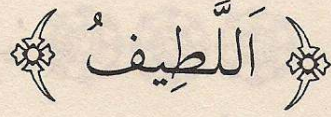 اَللَّطِيفُ